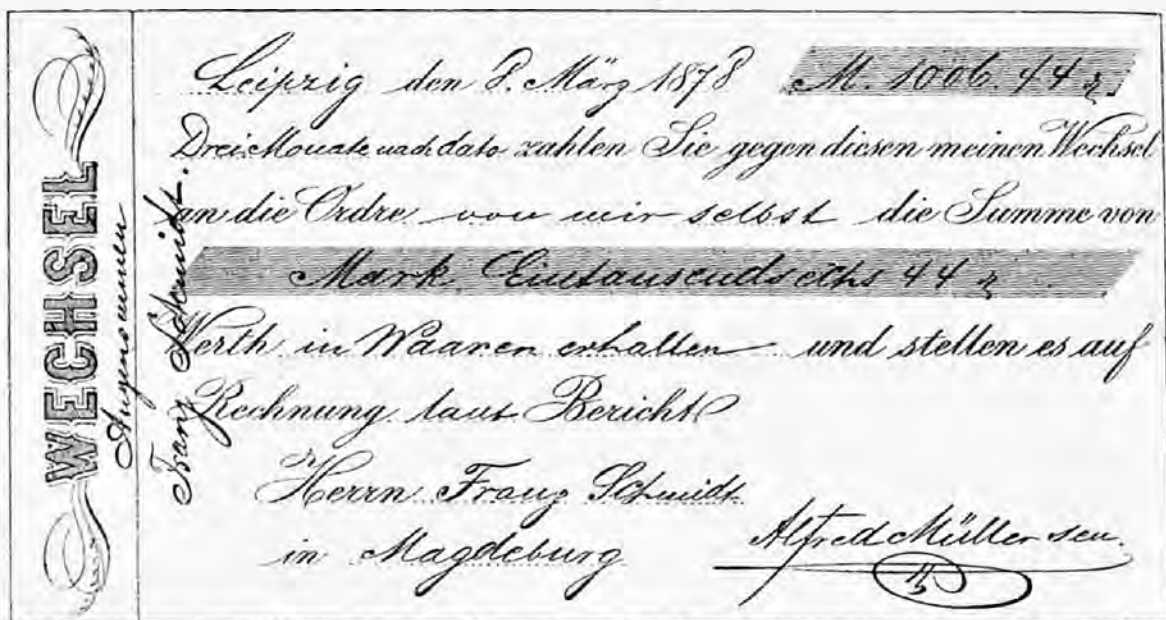 WECHSEL
Angenommen
Franz Schmidt.
Leipzig den 8. März 1878 M. 1006. 44 ₰.
Drei Monate nach dato zahlen Sie gegen diesen meinen Wechsel
an die Ordre von mir selbst die Summe von
Mark Eintausendsechs 44 ₰
Werth in Waaren erhalten und stellen es auf
Rechnung laut Bericht
Herrn Franz Schmidt
in Magdeburg
Alfred Müller sen.